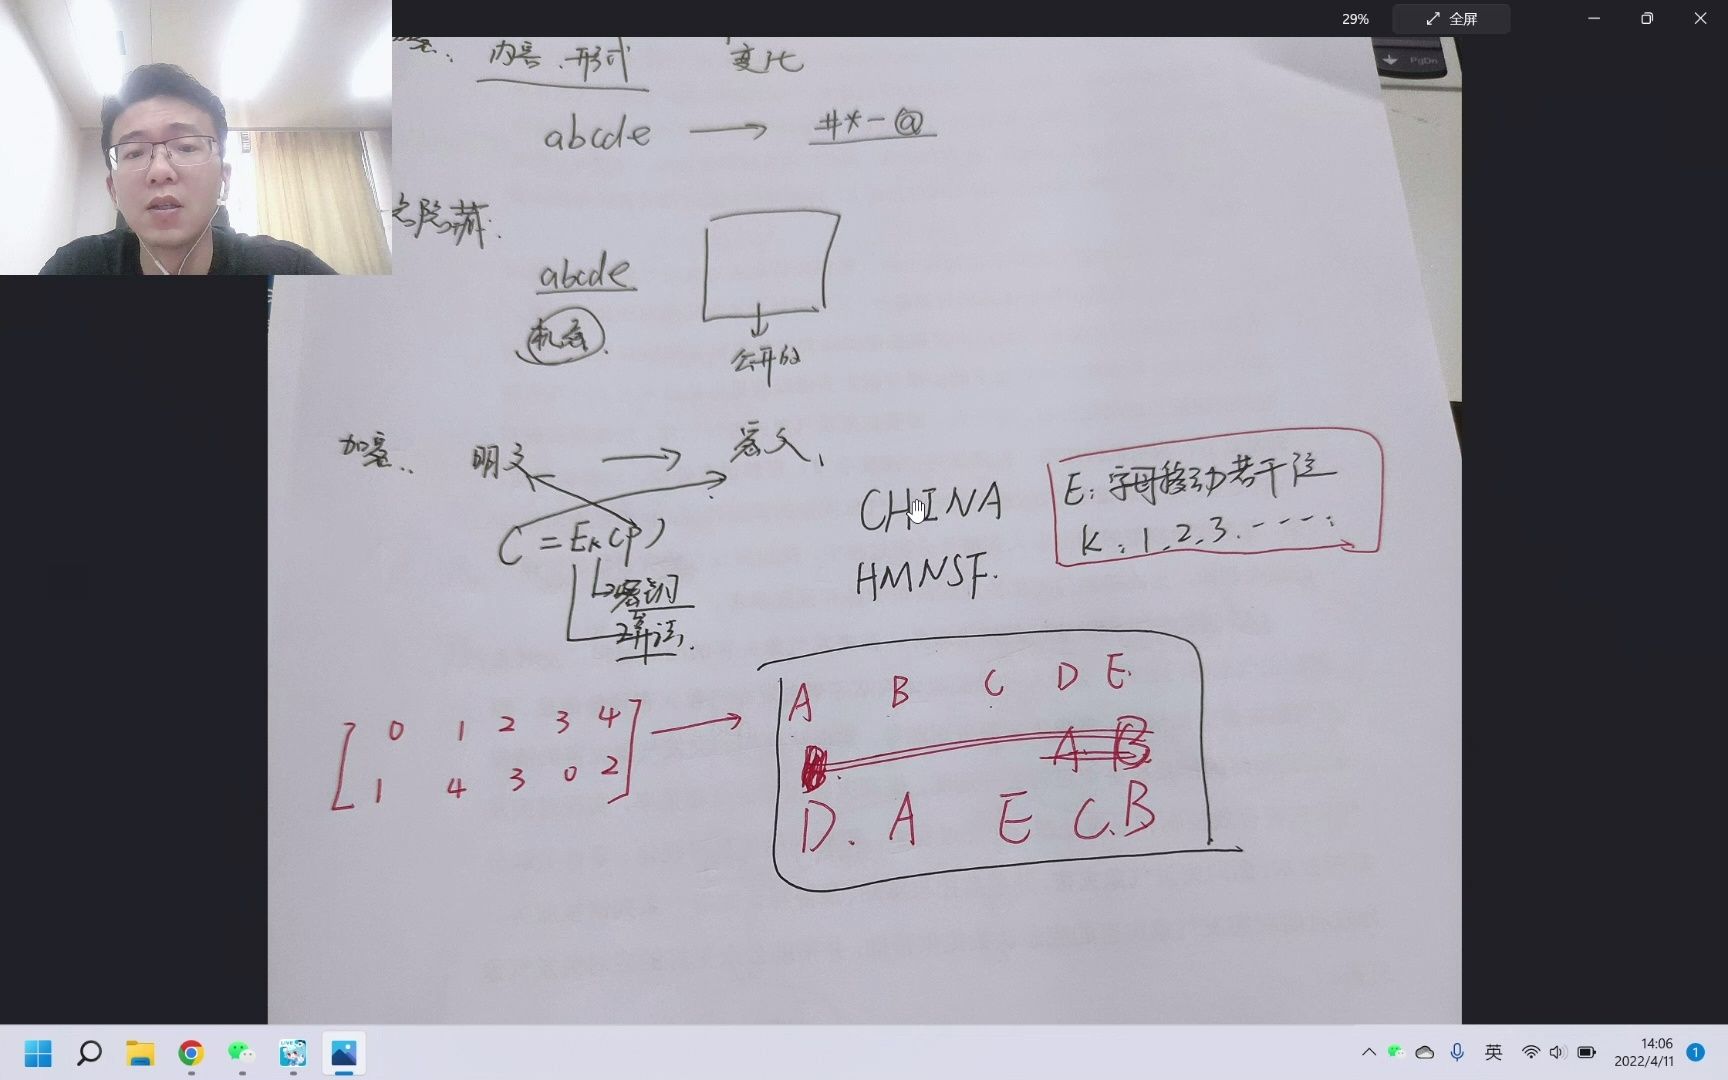 29%
全屏
PgDn
内容、形式 变化
abcde → #*-@
隐藏:
abcde
机密.
公开的
加密: 明文 → 密文、
C = Ek(P)
密钥
算法.
CHINA
HMNSF.
E: 字母移动若干位
K: 1、2、3.----;
0 1 2 3 4
1 4 3 0 2
A B C D E.
A. B
D. A E C. B
LIVE
英
14:06
2022/4/11
1